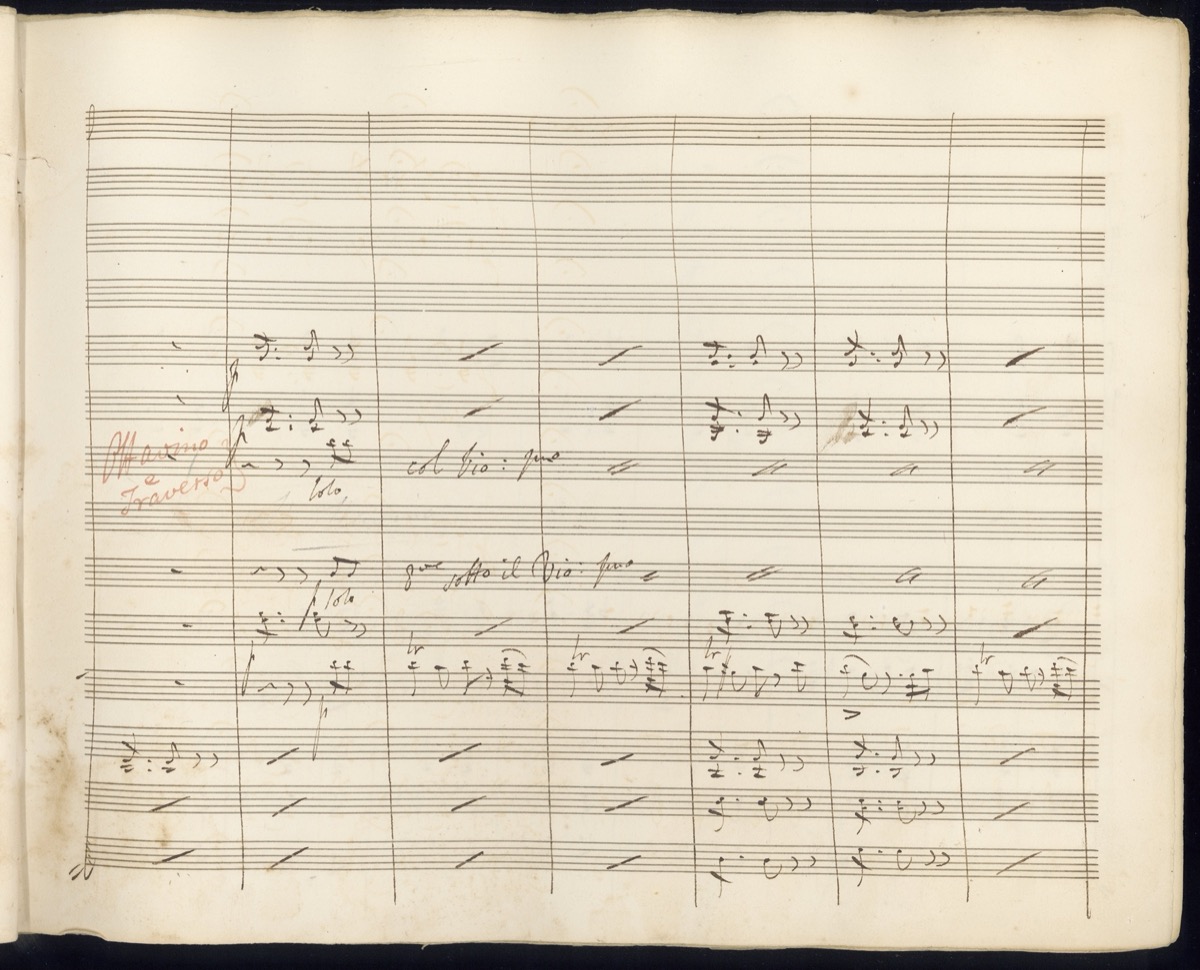 p
p
Ottavino
e
Traverso
Solo
col Vio: pmo
Solo
8ve
sotto il Vio: pmo
p
tr tr tr tr
p